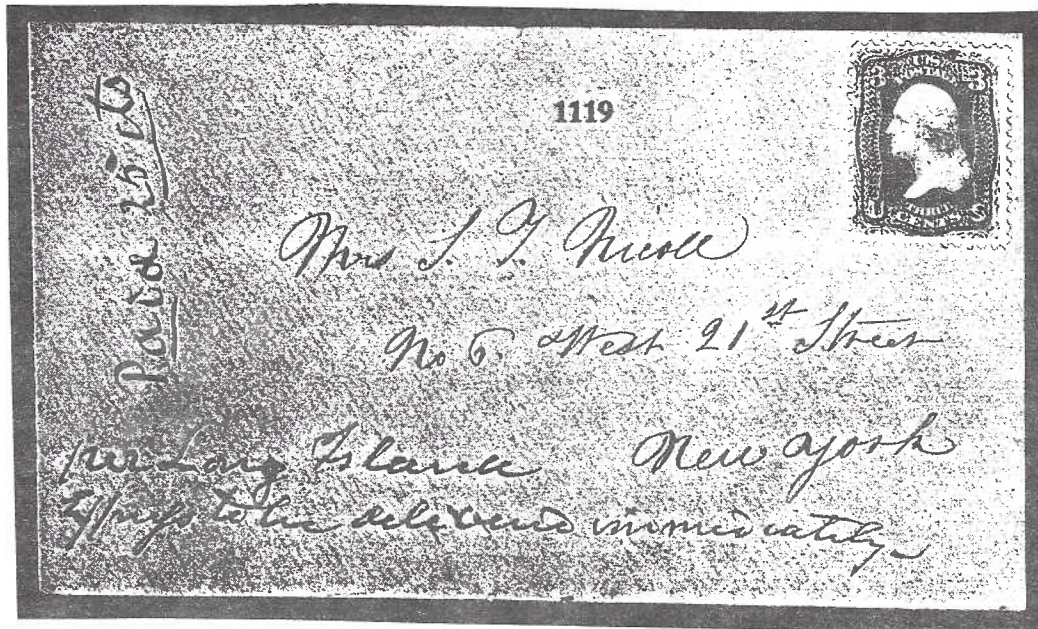 Paid 25 cts
1119
Mrs S. T. Nicoll
No 6. West 21st Street
New York
per Long Island
Express to be delivered immediately